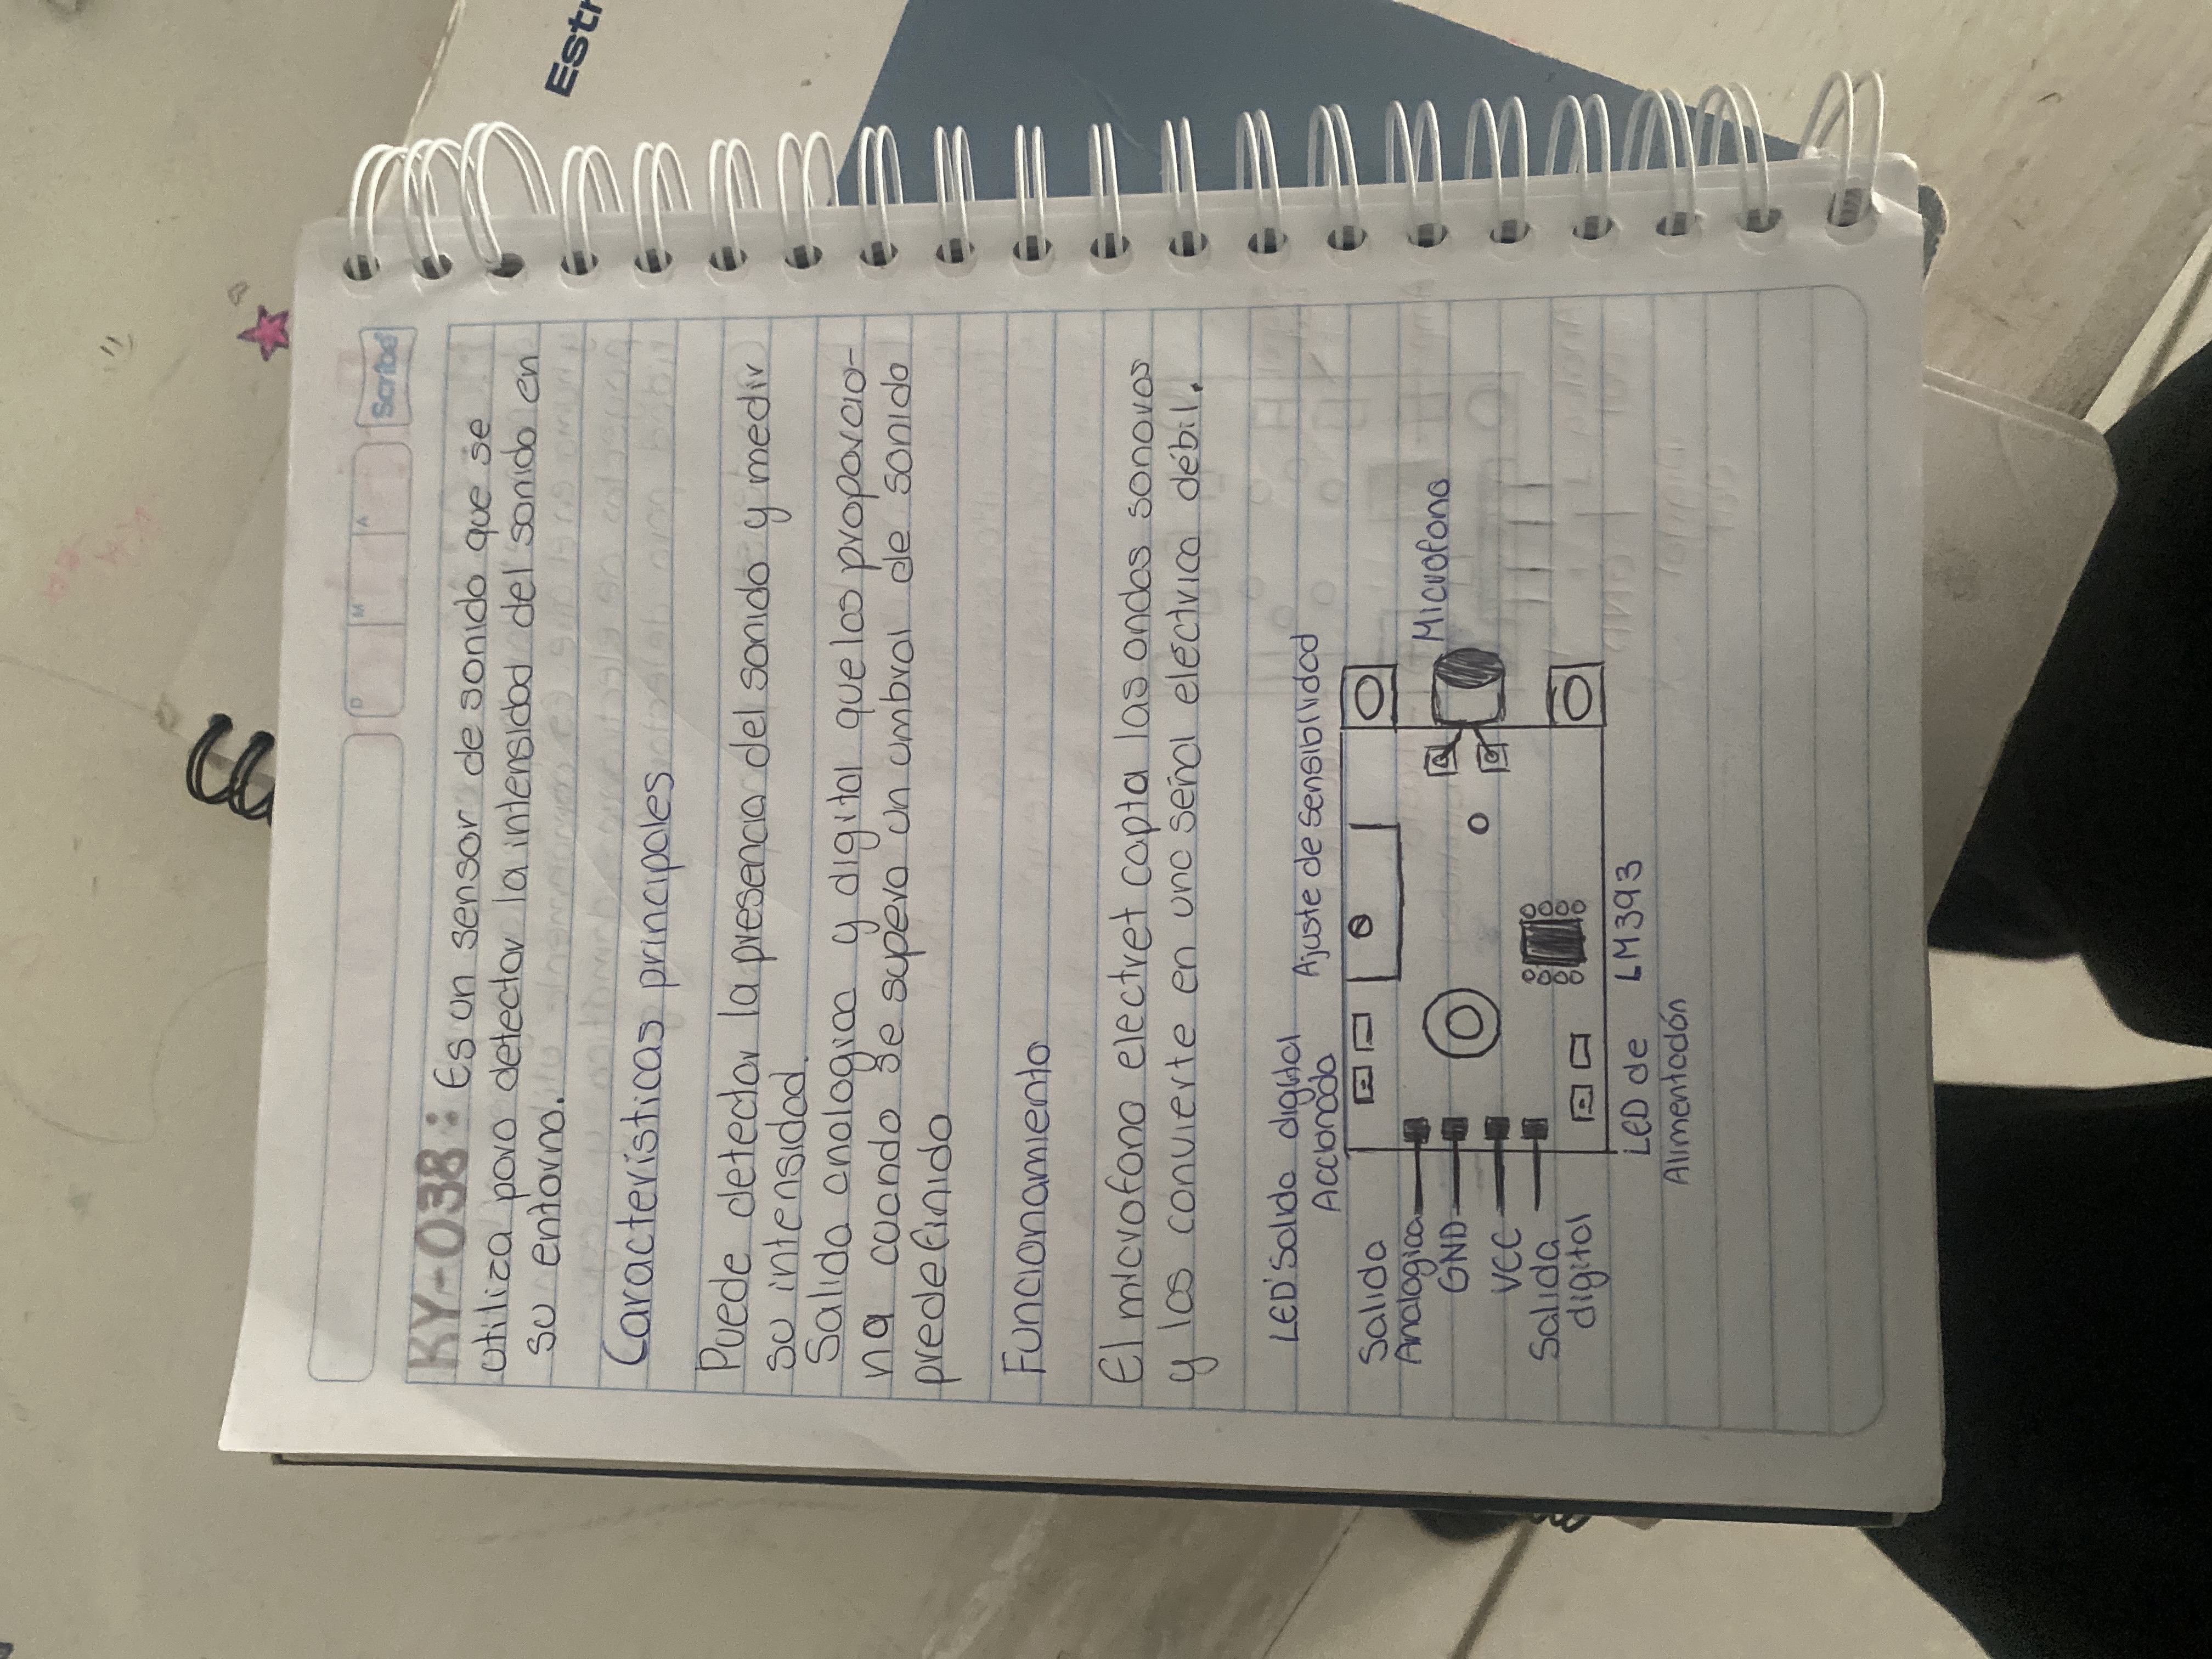 Estr
Scribe
D M A
KY-038: Es un sensor de sonido que se
utiliza para detectar la intensidad del sonido en
su entorno.
Características principales
Puede detectar la presencia del sonido y medir
su intensidad.
Salida analogica y digital que las proporcio-
na cuando se supera un umbral de sonido
predefinido
Funcionamiento
El microfono electret capta las ondas sonoras
y las convierte en una señal electrica débil.
LED'Salida digital
Accionada
Ajuste de sensiblidad
Microfono
Salida
Analogica
GND
VCC
Salida
digital
LED de
Alimentadón
LM393